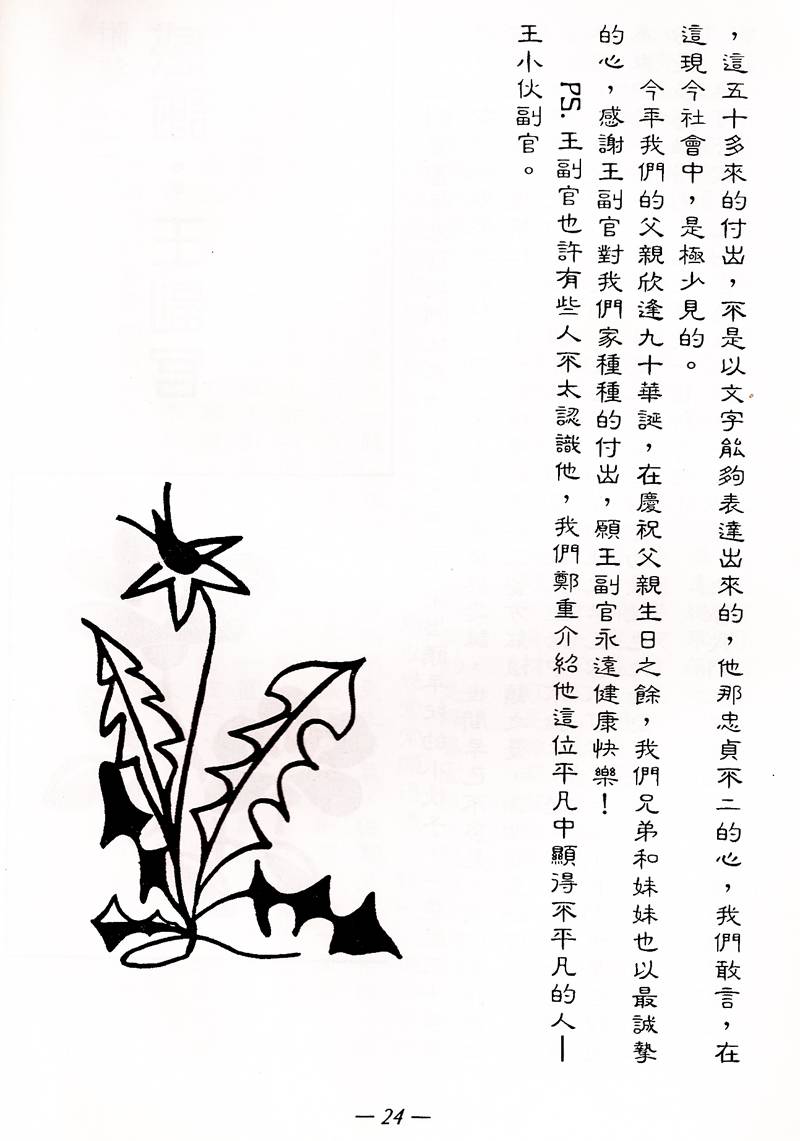 ，這五十多來的付出，不是以文字能夠表達出來的，他那忠貞不二的心，我們敢言，在
這現今社會中，是極少見的。
今年我們的父親欣逢九十華誕，在慶祝父親生日之餘，我們兄弟和妹妹也以最誠摯
的心，感謝王副官對我們家種種的付出，願王副官永遠健康快樂！
PS. 王副官也許有些人不太認識他，我們鄭重介紹他這位平凡中顯得不平凡的人—
王小伙副官。
— 24 —